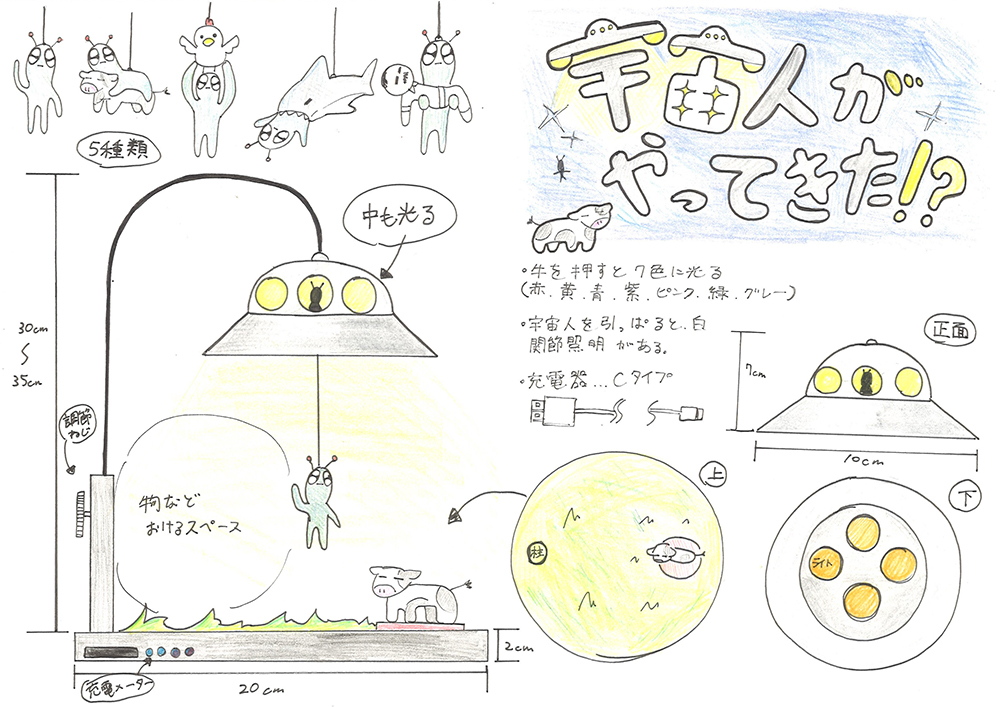 5種類
宇宙人が
やってきた!?
中も光る
・牛を押すと7色に光る
(赤、黄、青、紫、ピンク、緑、グレー)
・宇宙人を引っぱると、白
関節照明がある。
・充電器…Cタイプ
30cm
〜
35cm
調節
ねじ
物など
おけるスペース
充電メーター
20cm
2cm
正面
7cm
10cm
上
柱
下
ライト